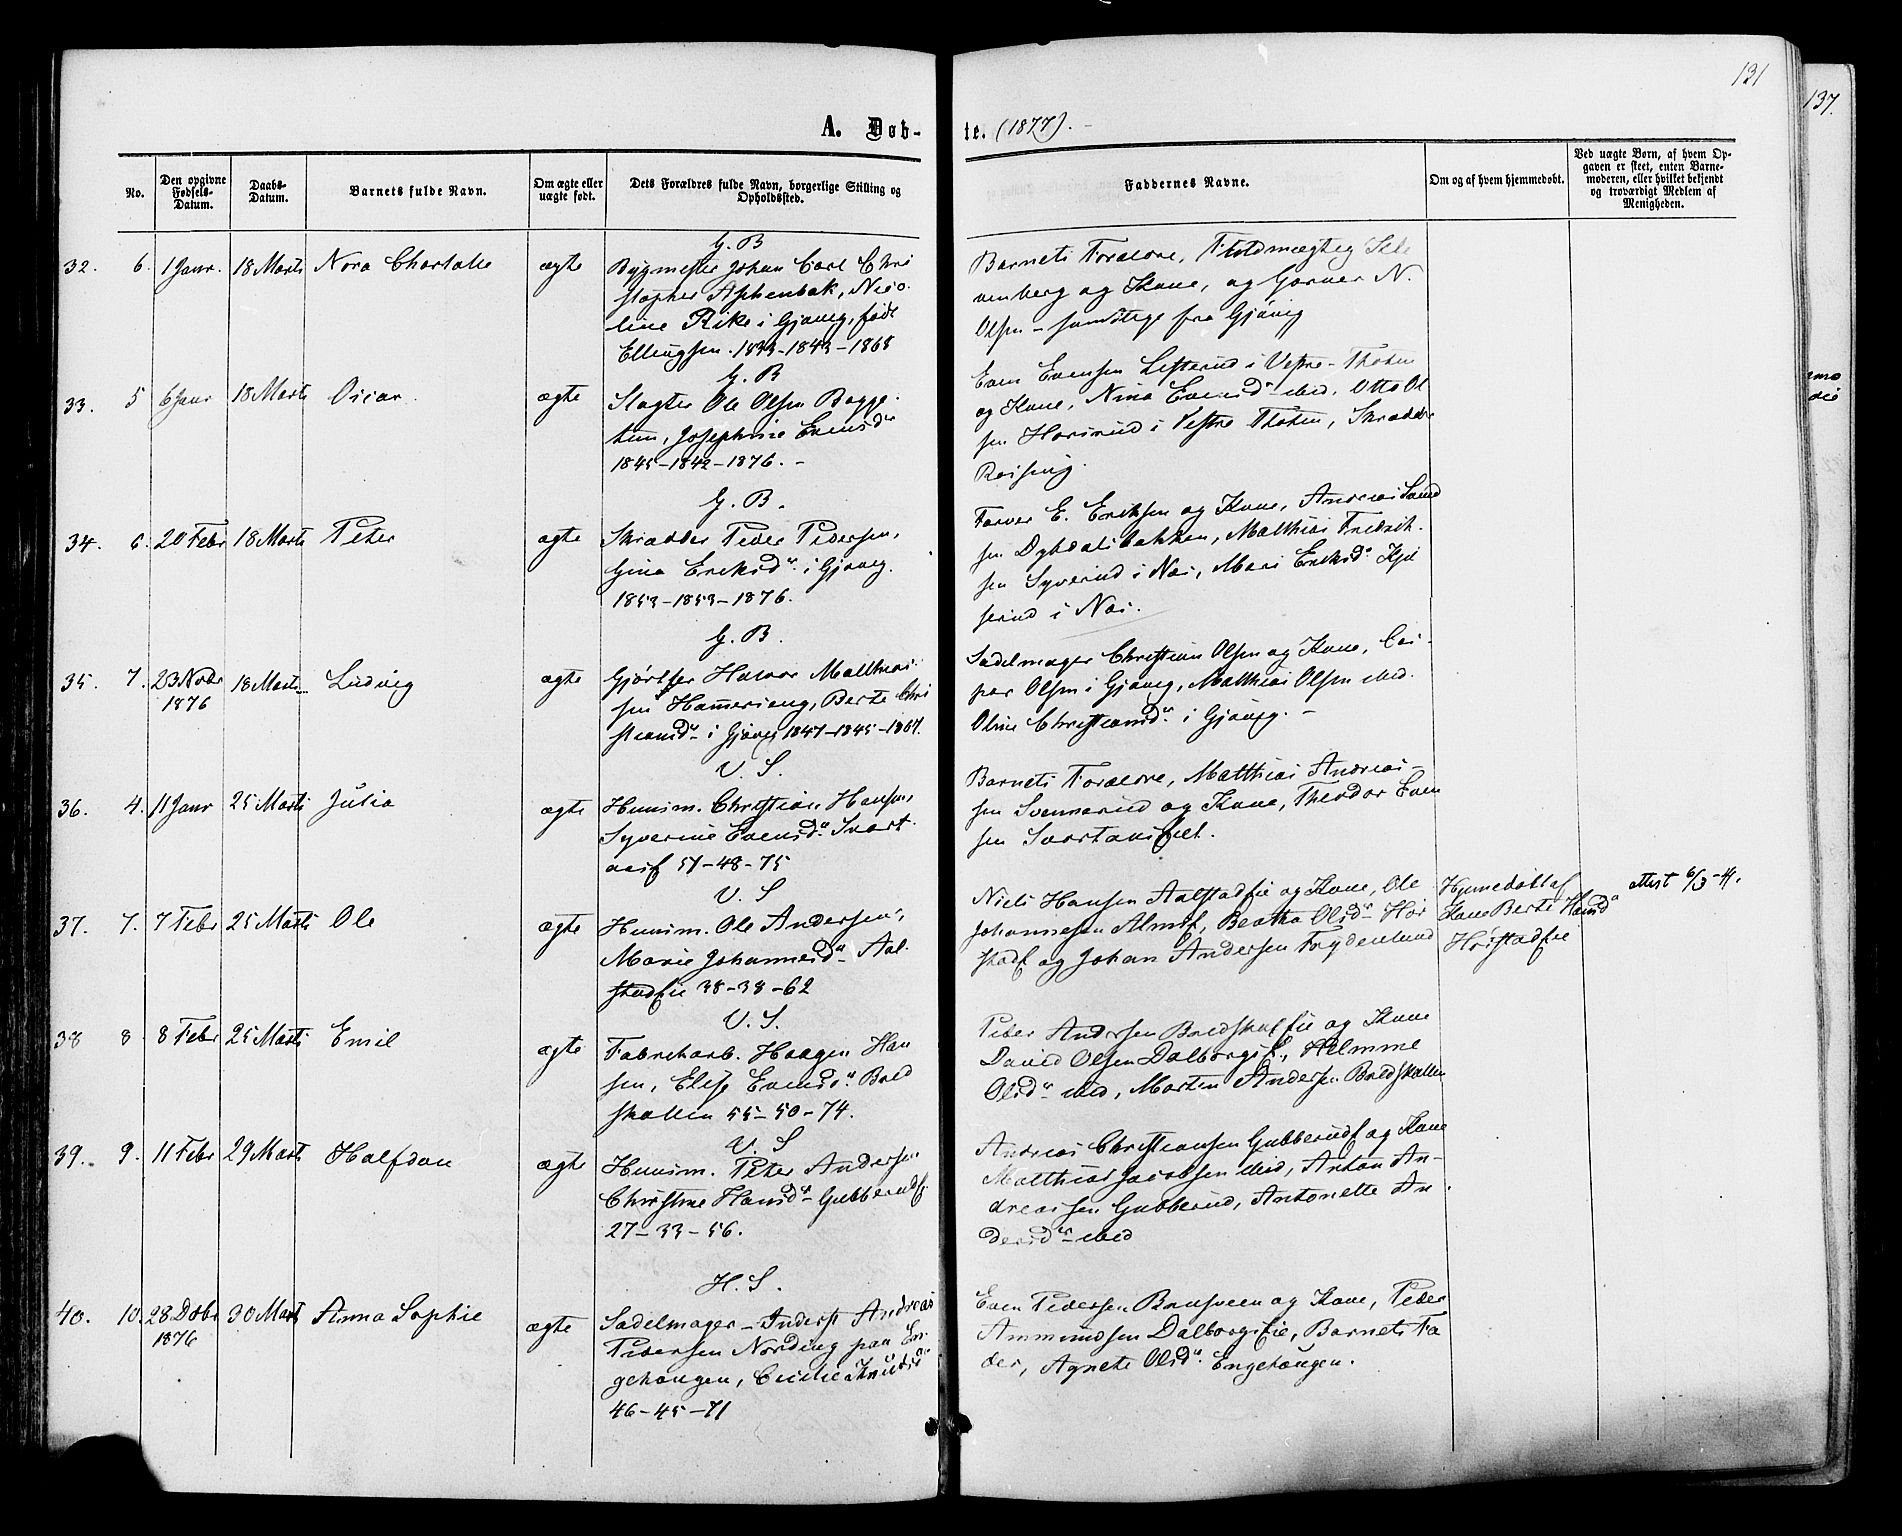 131
137.
A. Døb-
te. (1877).
No.
Den opgivne Fødsels-Datum.
Daabs-Datum.
Barnets fulde Navn.
Om ægte eller uægte født.
Dets Forældres fulde Navn, borgerlige Stilling og Opholdssted.
Faddernes Navne.
Om og af hvem hjemmedøbt.
Ved uægte Børn, af hvem Op-
gaven er skeet, enten Barne-
moderen, eller hvilket bekjendt
og troværdigt Medlem af
Menigheden.
G. B
32. 6. 1 Janr. 18 Marts Nora Charlotte ægte
Bygmester Johan Carl Chri
stopher Aschenbak, Nico
line Rike i Gjøvig, født
Ellingsen. 1833-1843-1868
Barnets Forældre, Fuldmægtig
og Kone, og Garver N.
Olsen - samtlige fra Gjövig
G. B
33. 5 6 Janr 18 Marts Oscar ægte
Slagter Ole Olsen Bagge-
tun, Josephine Evensdr
1845-1842-1876. -
Even Evensen Lifterud i Vestre-Thoten
og Kone, Nina Evensdr ibid. Otto Ol
sen Horsrud i Vestre Thoten, Skrædder
G. B.
34. 6. 20 Febr 18 Marts Peter ægte
Skrædder Peder Pedersen,
Gina Eriksdr i Gjøvig.
1853-1853-1876.
Farver E. Eriksen og Kone, Andreas
sen Dybdalsbakken, Matthias Fredrik-
sen Syverud i Næs, Mari Eriksdr
serud i Næs.
G. B.
35. 7. 23 Novbr 1876 18 Marts Ludvig ægte
Gjørtler Halvor Matthias-
sen Hammerseng, Berte Chri
stiansdr i Gjøvig 1847-1845-1867.
Sadelmager Christian Olsen og Kone, Cas-
per Olsen i Gjøvig, Matthias Olsen ibid.
Oline Christiansdr i Gjøvig. -
V. S.
36. 4. 11 Janr 25 Marts Julia ægte
Huusm. Christian Hansen,
Syverine Evensdr Svart-
aasf 51-48-75
Barnets Forældre, Matthias Andreas-
sen Svennerud og Kone, Theodor Even
sen
V. S
37. 7. 7 Febr 25 Marts Ole ægte
Huusm. Ole Andersen,
Marie Johannesdr Aal-
stadeie 38-38-62
Niels Hansen Aalstadeie og Kone, Ole
Johannesen Almsf, Beatha Olsdr Hør
stadf og Johan Andersen Frydenlund
Hjemmedøbt af
Kone Berte Hansdr
Hørstadeie
attest 6/3-4.
V. S.
38 8. 8 Febr 25 Marts Emil ægte
Fabrikarb. Haagen Han
sen, Elise Evensdr Bred
skallen 55-50-74.
Peder Andersen Bredskaleie og Kone
David Olsen Dalborgsf.,
Olsdr ibid, Morten Andersen Bredskallen
V. S
39. 9. 11 Febr 29 Marts Halfdan ægte
Huusm. Peter Andersen
Christine Hansdr Gubberudf
27-33-56.
Andreas Christiansen Gubberudf og Kone
Matthias Jacobsen ibid, Anton An-
dreassen Gubberud, Antonette An-
dersdr ibid
H. S.
40. 10. 28 Dcbr 1876 30 Marts Anna Sophie ægte
Sadelmager - Andreas
Pedersen Nording paa En-
gehaugen, Cicilie Knudsdr
46-45-71
Even Pedersen Brusveen og Kone, Peder
Ammundsen Dalborgeie, Barnets Fa
der, Agnete Olsdr Engehaugen.